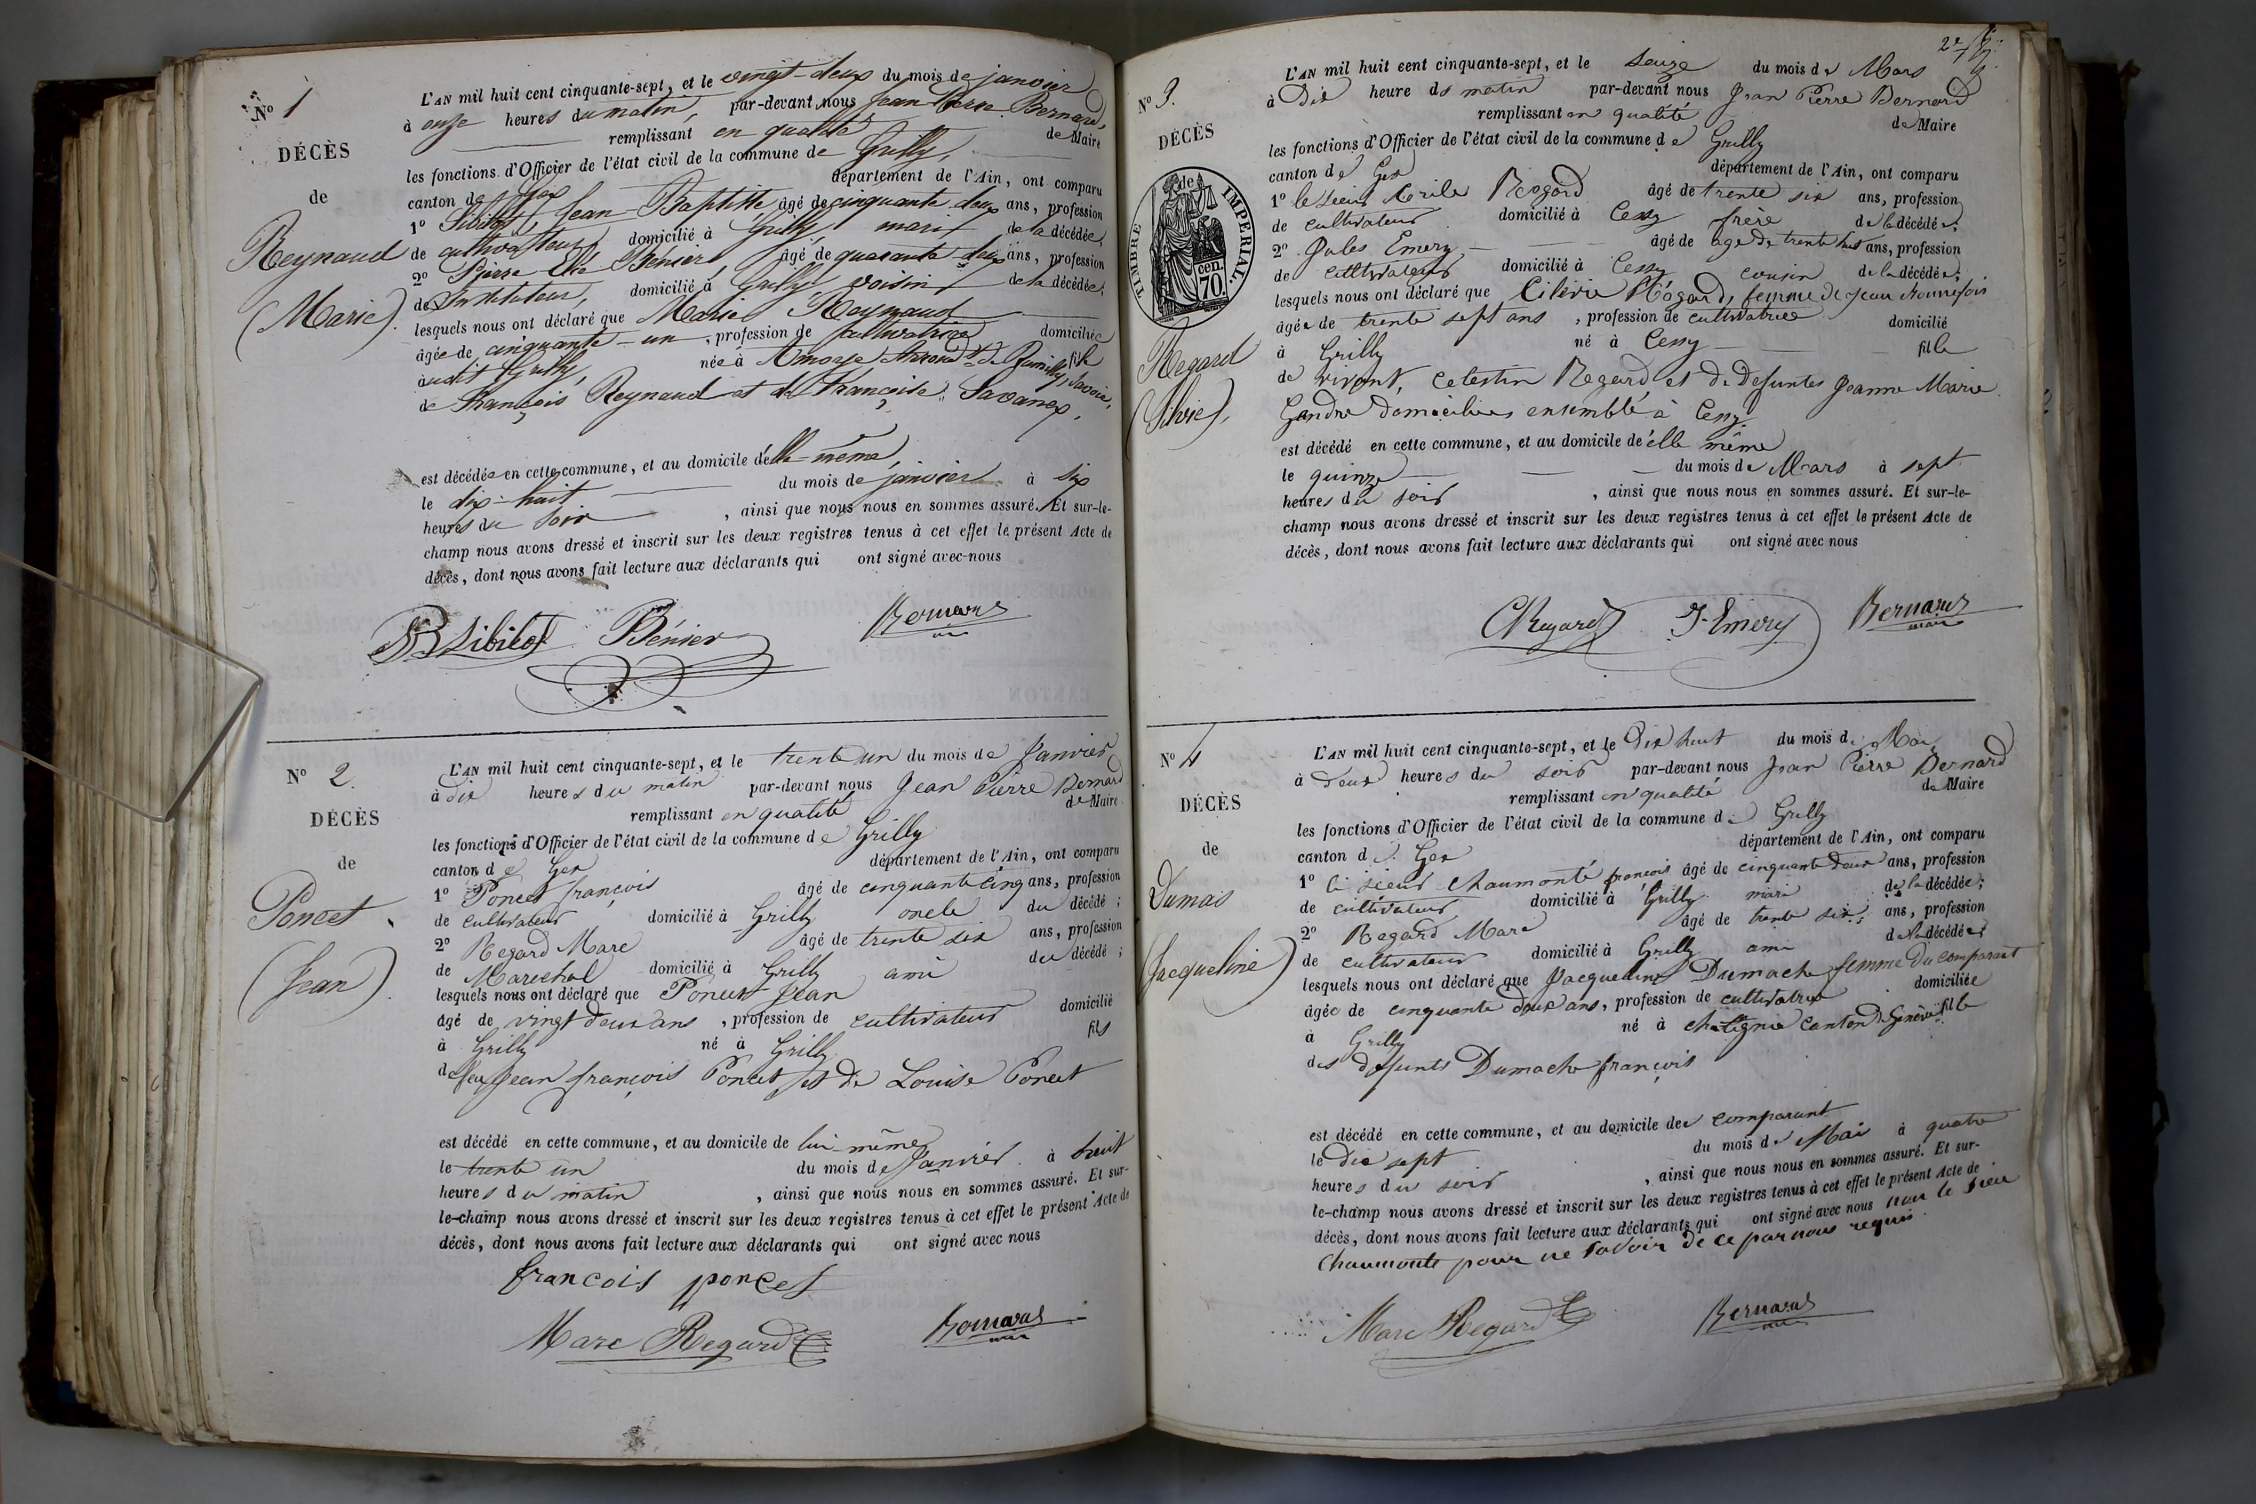 No 1
DÉCÈS
de
Reynaud
(Marie).
L'AN mil huit cent cinquante-sept, et le vingt-deux du mois de janvier
à onze heures du matin, par-devant nous Jean Pierre Bernard,
remplissant en qualité de Maire
les fonctions d'Officier de l'état civil de la commune de Grilly,
canton de Gex département de l'Ain, ont comparu
1o Sibilot, Jean Baptiste, âgé de cinquante deux ans, profession
de cultivateur, domicilié à Grilly, mari de la décédée,
2o Pierre Bénier, âgé de quarante deux ans, profession
de Instituteur, domicilié à Grilly voisin de la décédée;
lesquels nous ont déclaré que Marie Reynaud
âgée de cinquante-un, profession de cultivatrice domiciliée
audit Grilly, née à de Rumilly, Savoie, fille
de François Reynaud et de Françoise Savanex,
est décédée en cette commune, et au domicile d'elle-même,
le dix-huit du mois de janvier à six
heures du soir, ainsi que nous nous en sommes assuré. Et sur-le-
champ nous avons dressé et inscrit sur les deux registres tenus à cet effet le présent Acte de
décès, dont nous avons fait lecture aux déclarants qui ont signé avec nous
JB Sibilot Bénier Bernard
maire
No 2.
DÉCÈS
de
Poncet
(Jean).
L'AN mil huit cent cinquante-sept, et le trente un du mois de Janvier
à dix heures du matin par-devant nous Jean Pierre Bernard
remplissant en qualité de Maire
les fonctions d'Officier de l'état civil de la commune de Grilly
canton de Gex département de l'Ain, ont comparu
1o Poncet françois âgé de cinquante cinq ans, profession
de cultivateur domicilié à Grilly oncle du décédé;
2o Regard Marc âgé de trente six ans, profession
de Marechal domicilié à Grilly ami du décédé;
lesquels nous ont déclaré que Poncet Jean
âgé de vingt deux ans, profession de cultivateur domicilié
à Grilly né à Grilly fils
de feu Jean françois Poncet et de Louise Poncet
est décédé en cette commune, et au domicile de lui-même
le trente un du mois de Janvier à huit
heures du matin, ainsi que nous nous en sommes assuré. Et sur-
le-champ nous avons dressé et inscrit sur les deux registres tenus à cet effet le présent Acte de
décès, dont nous avons fait lecture aux déclarants qui ont signé avec nous
francois poncet
Marc Regard Bernard
maire
No 3.
DÉCÈS
de
TIMBRE IMPERIAL.
70. cen.
Regard
(Silvie),
L'AN mil huit cent cinquante-sept, et le seize du mois de Mars
à Dix heure du matin par-devant nous Jean Pierre Bernard
remplissant en qualité de Maire
les fonctions d'Officier de l'état civil de la commune de Grilly
canton de Gex département de l'Ain, ont comparu
1o le sieur Regard âgé de trente six ans, profession
de cultivateur domicilié à Cessy frère de la décédée;
2o Jules Emery âgé de age de trente huit ans, profession
de cultivateur domicilié à Cessy cousin de la décédée;
lesquels nous ont déclaré que Regard, femme de Jean
âgée de trente sept ans, profession de cultivatrice domicilié
à Grilly né à Cessy fille
de vivant, Celestin Regard et de Defuntes Jeanne Marie
Gandre Domiciliés ensemble à Cessy
est décédé en cette commune, et au domicile de elle même
le quinze du mois de Mars à sept
heures du soir, ainsi que nous nous en sommes assuré. Et sur-le-
champ nous avons dressé et inscrit sur les deux registres tenus à cet effet le présent Acte de
décès, dont nous avons fait lecture aux déclarants qui ont signé avec nous
C Regard J. Emery Bernard
maire
No 4
DÉCÈS
de
Dumas
(Jacqueline)
L'AN mil huit cent cinquante-sept, et le Dix huit du mois de Mai
à Deux heures du soir par-devant nous Jean Pierre Bernard
remplissant en qualité de Maire
les fonctions d'Officier de l'état civil de la commune de Grilly
canton de Gex département de l'Ain, ont comparu
1o le sieur Chaumonté françois âgé de cinquante Deux ans, profession
de cultivateur domicilié à Grilly mari de la décédée;
2o Regard Marc âgé de trente six ans, profession
de cultivateur domicilié à Grilly ami de la décédée;
lesquels nous ont déclaré que Jacqueline Dumache femme du comparant
âgée de cinquante deux ans, profession de cultivatrice domiciliée
à Grilly né à Chatignie canton de Genève fille
des défunts Dumache françois
est décédé en cette commune, et au domicile de comparant
le Dix sept du mois de Mai à quatre
heures du soir, ainsi que nous nous en sommes assuré. Et sur-
le-champ nous avons dressé et inscrit sur les deux registres tenus à cet effet le présent Acte de
décès, dont nous avons fait lecture aux déclarants qui ont signé avec nous non le sieur
Chaumonté pour ne savoir de ce par nous requis.
Marc Regard Bernard
maire